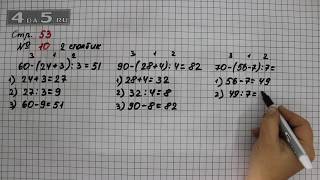 4da5.ru
Стр. 53
№ 10 2 столбик
3 1 2
60-(24+3):3=51
1) 24+3=27
2) 27:3=9
3) 60-9=51
3 1 2
90-(28+4):4=82
1) 28+4=32
2) 32:4=8
3) 90-8=82
3 1 2
70-(56-7):7=
1) 56-7=49
2) 49:7=